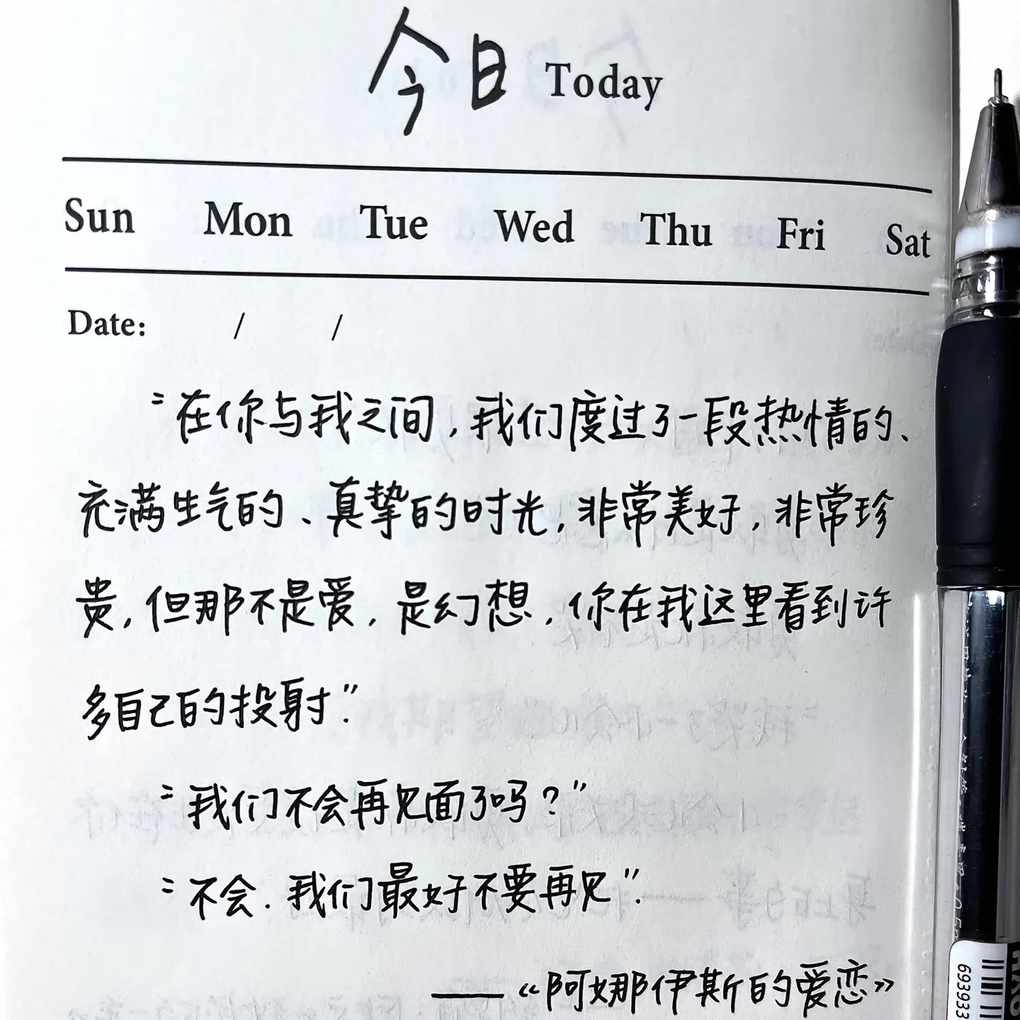 今日 Today
Sun Mon Tue Wed Thu Fri Sat
Date: / /
“在你与我之间,我们度过了一段热情的、
充满生气的、真挚的时光,非常美好,非常珍
贵,但那不是爱,是幻想,你在我这里看到许
多自己的投射”.
“我们不会再见面了吗?”
“不会.我们最好不要再见”.
——《阿娜伊斯的爱恋》
693933